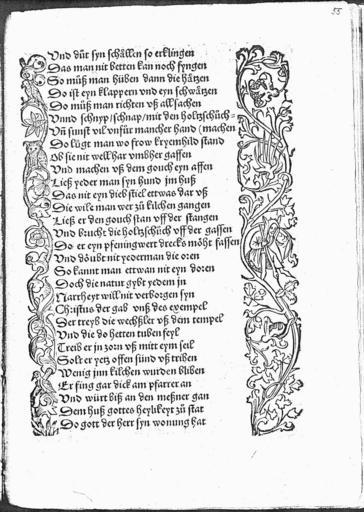 55
Vnd důt syn schållen so erklingen
Das man nit betten kan noch syngen
So můß man hüben dann die håtzen
Do ist eyn klappern vnd eyn schwåtzen
Do můß man richten vß all sachen
Vnnd schnyp/schnap/mit den holtzschůch=
Vñ sunst vil vnfůr mancher hand (machen
Do lůgt man wo frow kryemhild stand
Ob sie nit well har vmbher gaffen
Vnd machen vß dem gouch eyn affen
Ließ yeder man syn hund jm huß
Das nit eyn dieb stiel ettwas dar vß
Die wile man wer zů kilchen gangen
Ließ er den gouch stan vff der stangen
Vnd brucht die holtzschůch vff der gassen
Do er eyn pfeningwert drecks möht fassen
Vnd döubt nit yederman die oren
So kannt man ettwan nit eyn doren
Doch die natur gybt yedem jn
Narrheyt will nit verborgen syn
Christus der gab vnß des exempel
Der treyb die wechßler vß dem tempel
Vnd die do hetten tuben feyl
Treib er jn zorn vß mitt eym seil
Solt er yetz offen sünd vß triben
Wenig jnn kilchen wurden bliben
Er fing gar dick am pfarrer an
Vnd würt biß an den meßner gan
Dem huß gottes heylikeyt zů stat
Do gott der herr syn wonung hat